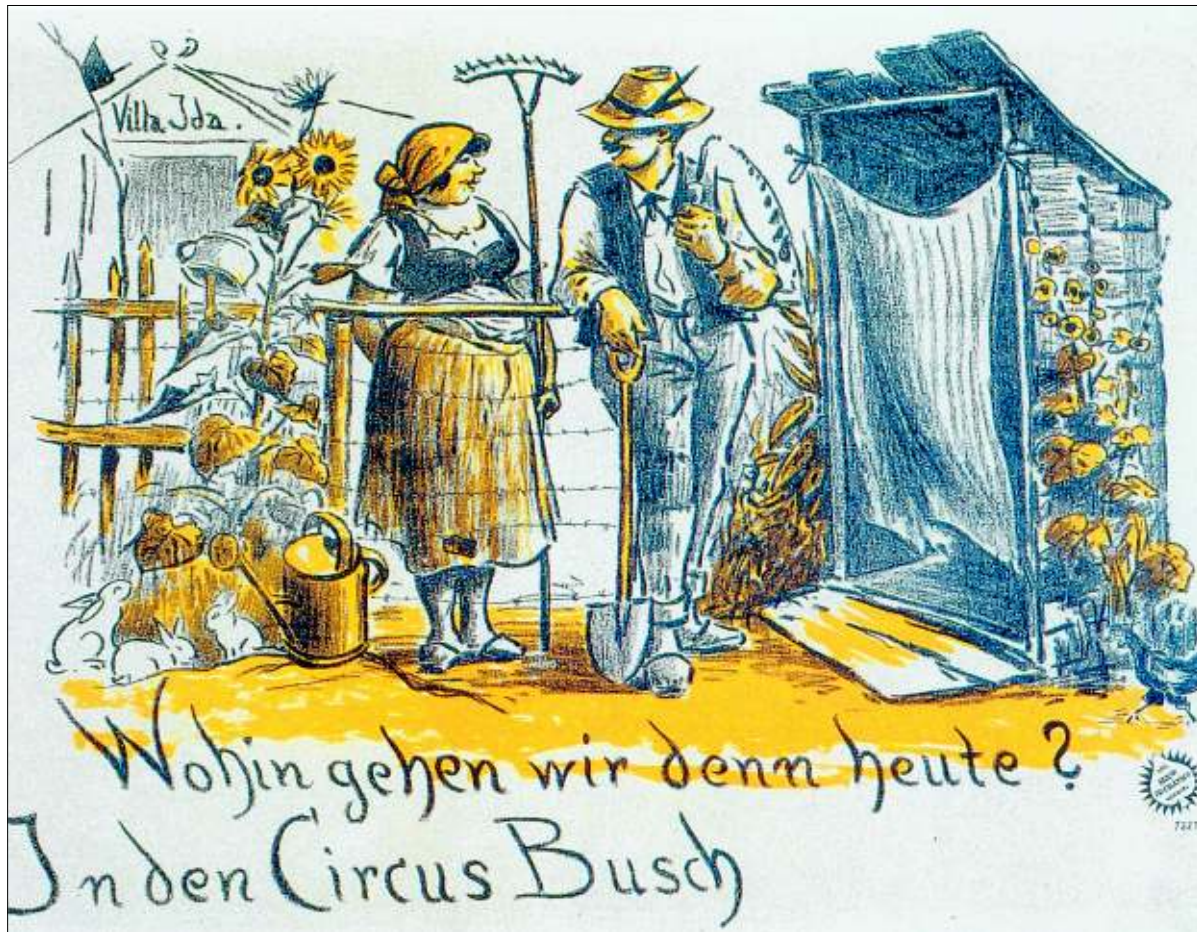 Villa Ida.
Wohin gehen wir denn heute?
In den Circus Busch